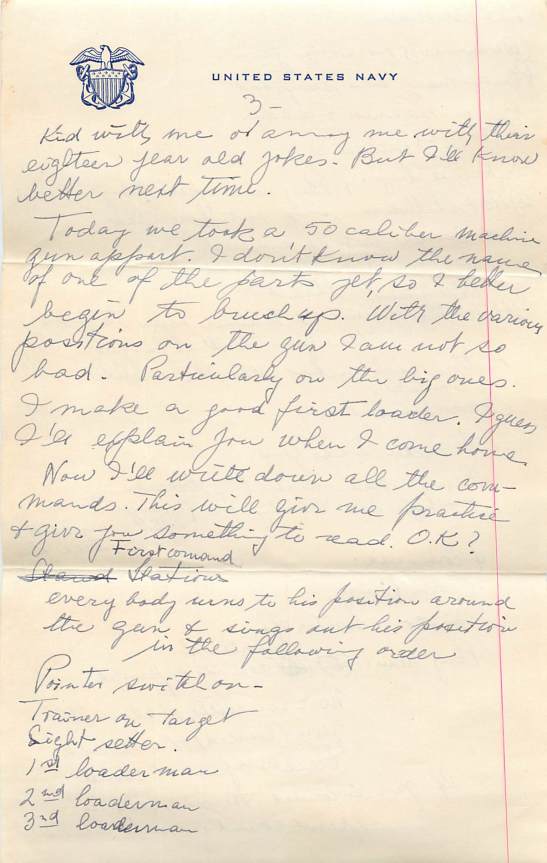 UNITED STATES NAVY
3-
Kid with me or annoy me with their
eighteen year old jokes. But I'll know
better next time.
Today we took a 50 caliber machine
gun appart. I don't know the name
of one of the parts yet, so I better
begin to brush up. With the various
positions on the gun I am not so
bad. Particularly on the big ones.
I make a good first loader. I guess
I'll explain you when I come home.
Now I'll write down all the com-
mands. This will give me practice
& give you something to read. O.K?
First comand
Stand Stations
everybody runs to his position around
the gun & sings out his position
in the following order
Pointer switch on-
Trainer on target
Sight setter.
1st loaderman
2nd loaderman
3rd loaderman